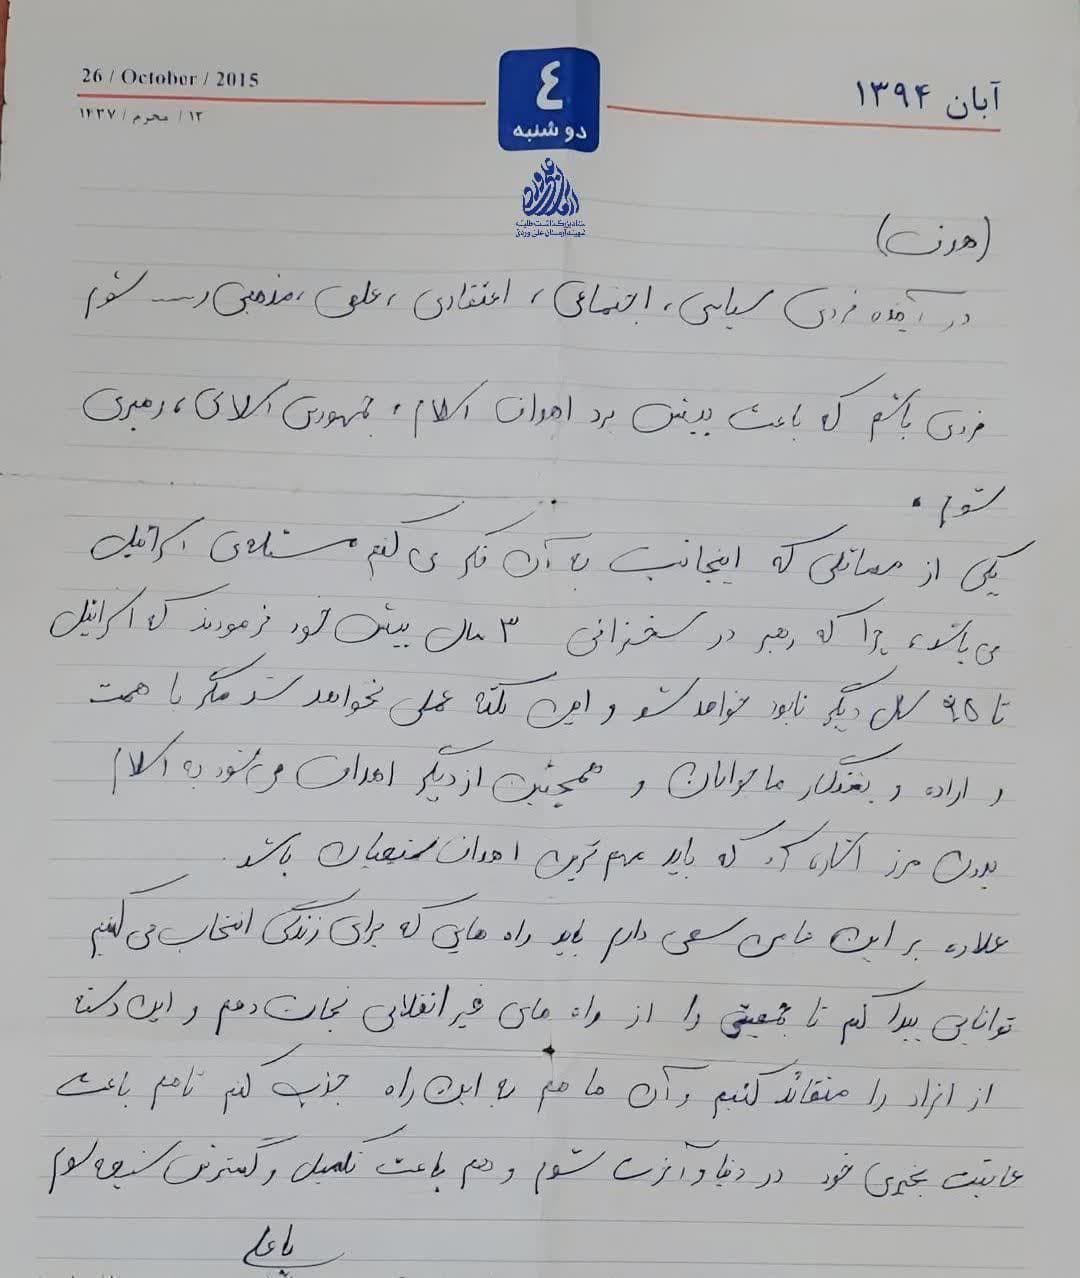 26 / October / 2015
۱۲ / محرم / ۱۴۳۷
٤
دوشنبه
آبان ۱۳۹۴
(هدف)
در آینده فردی سیاسی، اجتماعی، اعتقادی، علمی، مذهبی و.... شوم
فردی باشم که باعث پیش برد اهداف اسلام، جمهوری اسلامی، رهبری
شوم.
یکی از مسائلی که اینجانب به آن فکر می کنم مسئله‌ی اسرائیل
می باشد، چرا که رهبر در سخنرانی ۳ سال پیش خود فرمودند که اسرائیل
تا ۲۵ سال دیگر نابود خواهد شد و این نکته عملی نخواهد شد مگر با همت
و اراده و پشتکار ما جوانان و همچنین از دیگر اهداف می شود به اسلام
بدون مرز اشاره کرد که باید مهم ترین اهداف شیعیان باشد.
علاوه بر این ها من سعی دارم باید راه هایی که برای زندگی انتخاب می کنیم
توانایی پیدا کنم تا جمعیتی را از راه های غیر انقلابی نجات دهم و این دسته
از افراد را متقاعد کنیم و آن ها هم به این راه جذب کنم تا هم باعث
عاقبت بخیری خود در دنیا و آخرت شوم و هم باعث تکمیل و گسترش شیعه شوم
یا علی